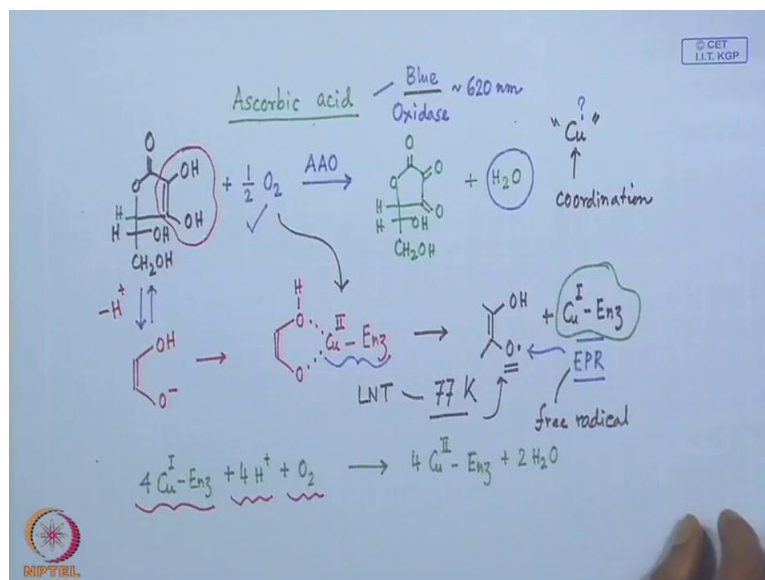 © CET
I.I.T. KGP
Ascorbic acid
Blue ~ 620 nm
Oxidase
"Cu" ?
coordination
O
O
OH
OH
H
H
OH
CH2OH
+ 1/2 O2
AAO
O
O
O
O
H
H
OH
CH2OH
+ H2O
-H+
OH
O-
H
O
O
Cu II - Enz
OH
O•
+ Cu I - Enz
EPR
free radical
LNT - 77 K
4 Cu I - Enz + 4H+ + O2 → 4 Cu II - Enz + 2H2O
NPTEL